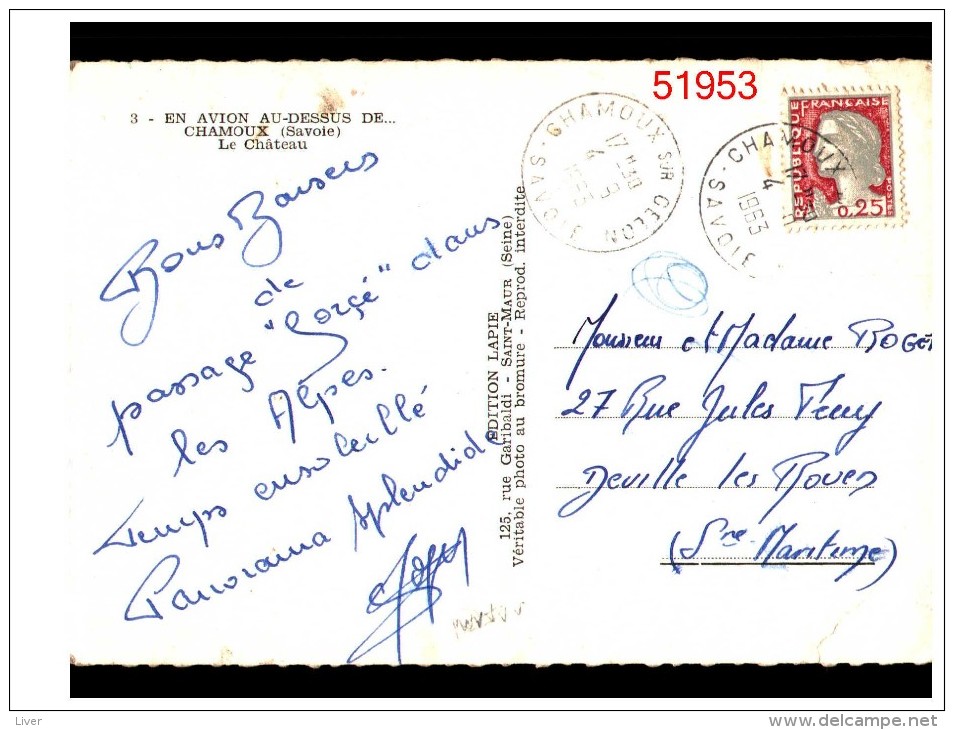 51953
3 - EN AVION AU-DESSUS DE...
CHAMOUX (Savoie)
Le Château
Bons Baisers
de
passage "forçé" dans
les Alpes.
Temps ensoleillé
Panorama splendide
EDITION LAPIE
125, rue Garibaldi - SAINT-MAUR (Seine)
Véritable photo au bromure - Reprod. interdite
CHAMOUX SUR GELON
SAVOIE
17H30
4 - 3
1963
CHAMOUX
SAVOIE
17H30
4
1963
REPUBLIQUE FRANCAISE
POSTES
0,25
Monsieur et Madame ROGER
27 Rue Jules Ferry
Deville les Rouen
(Sne Maritime)
Liver
www.delcampe.net